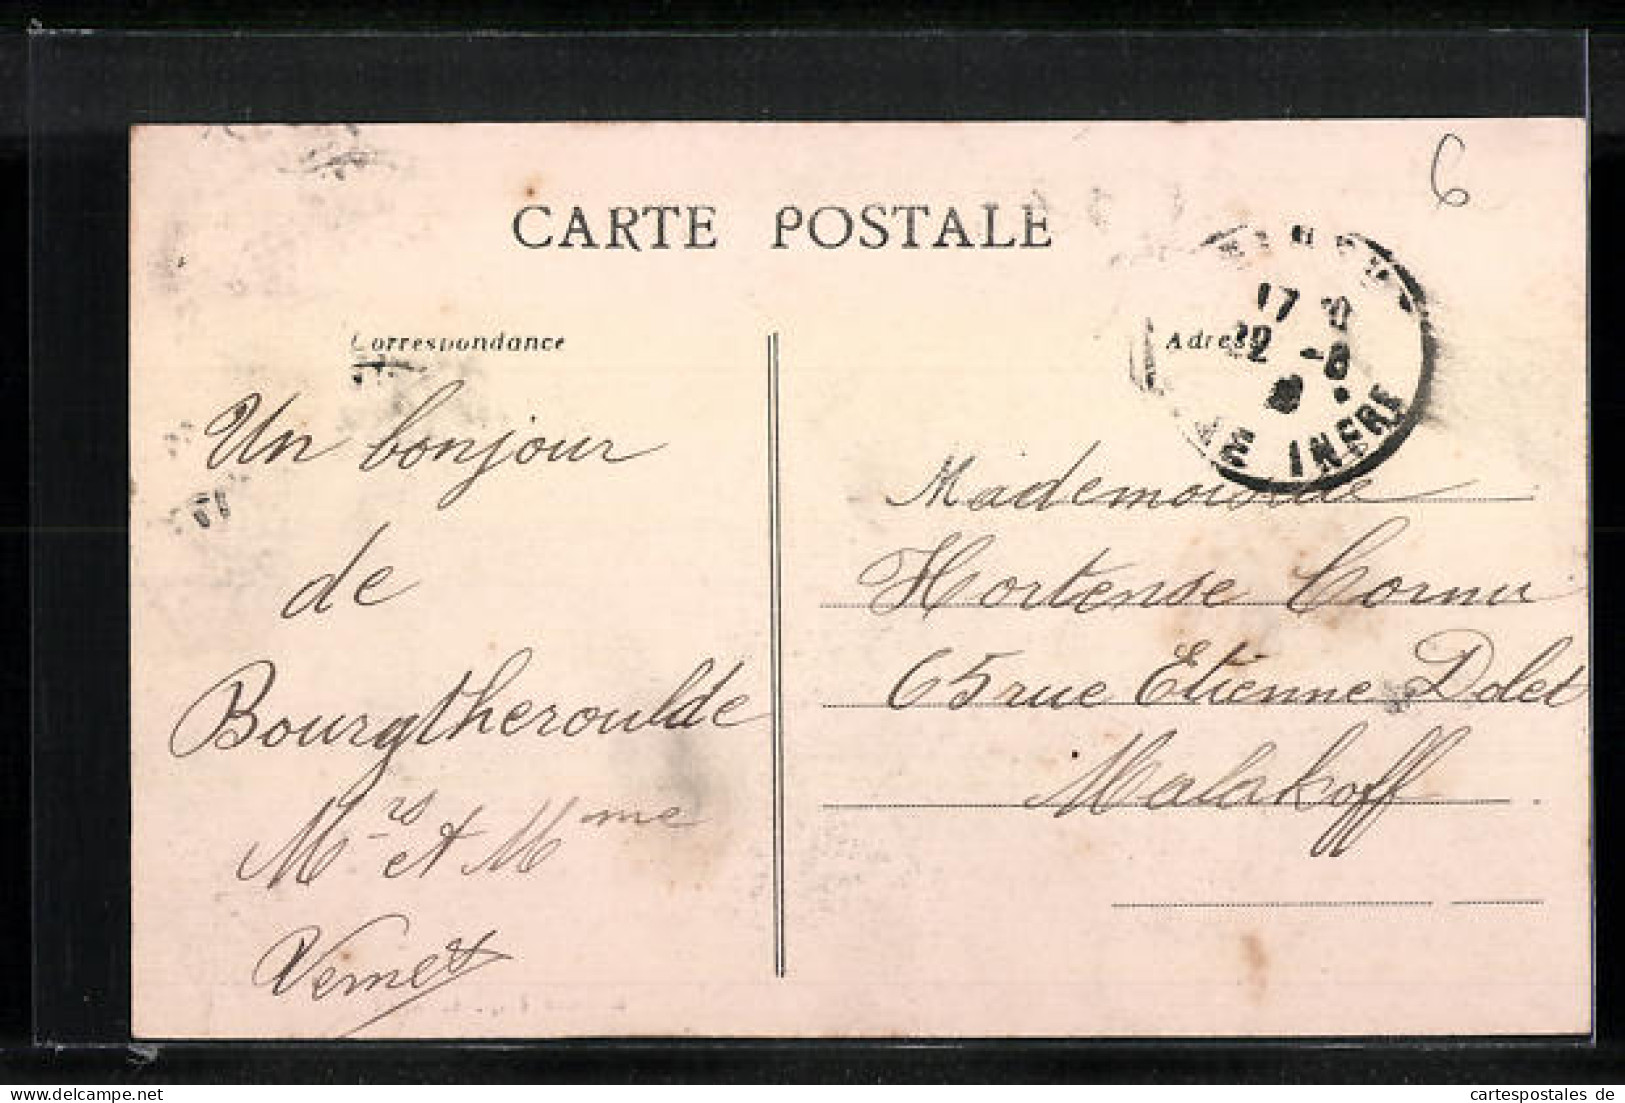 6
CARTE POSTALE
Correspondance
Adresse
17
22 -8
INFRE
Un bonjour
de
Bourgtheroulde
Mrs et Mme
Vernet
Mademoiselle
Hortense Cornu
65 rue Etienne Dolet
Malakoff
cartespostales de